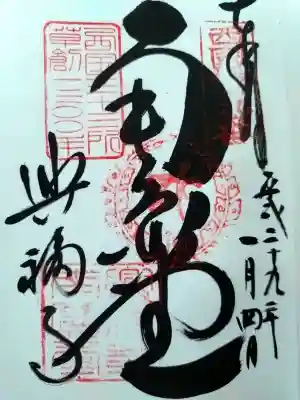 奉拝
平成二十九年
一月四日
南円堂
興福寺
西国三十三所
草創一三〇〇年